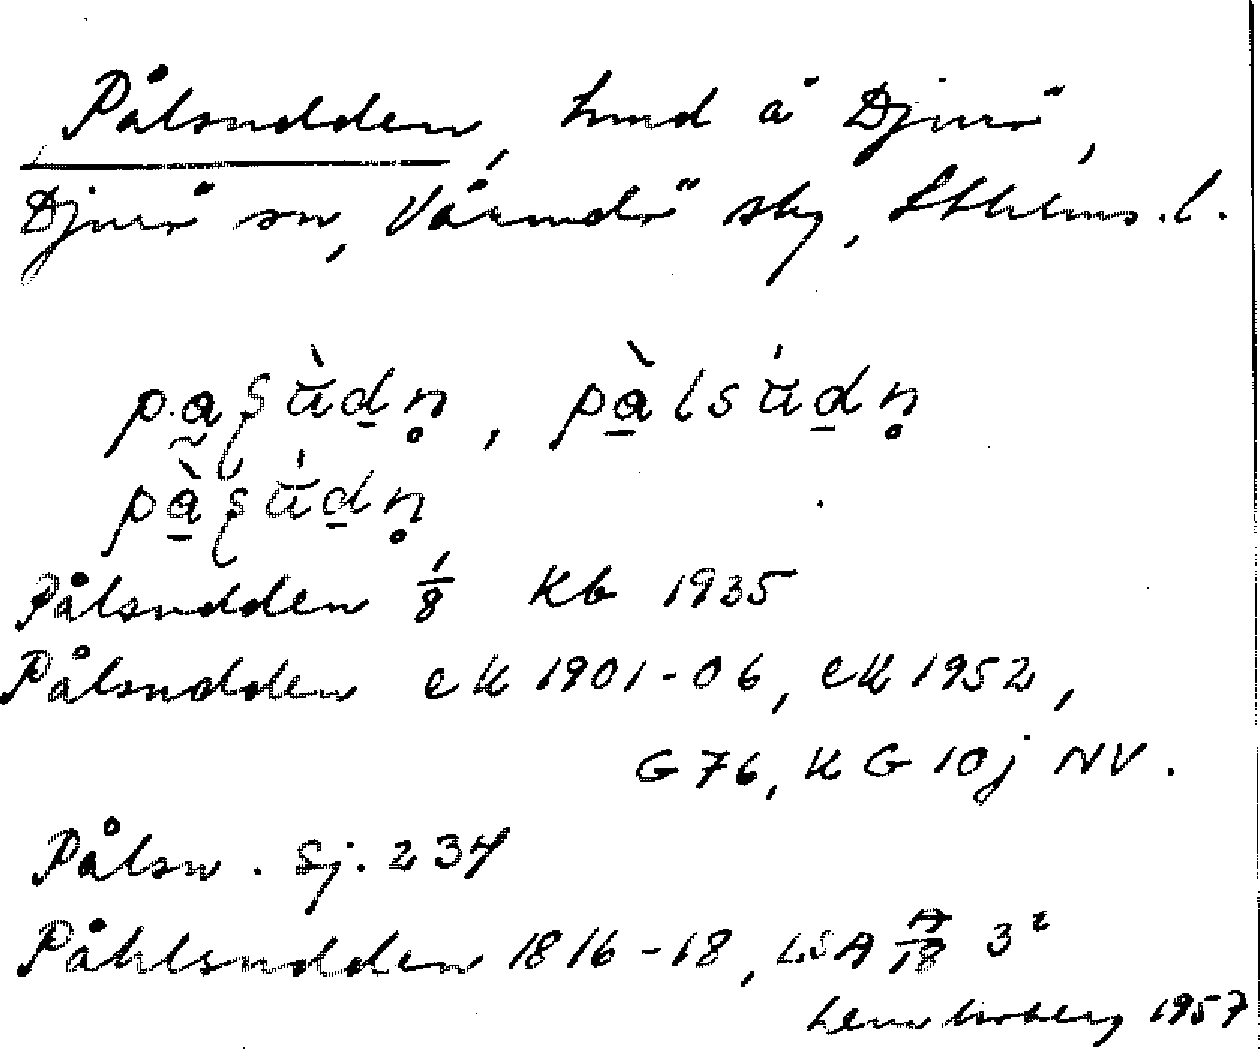 Pålsudden, hmd å Djurö,
Djurö sn, Värmdö skg, Sthlms. l.
pa̰ʂùdn̥, pàlsúdn̥
pàʂúdn̥
Pålsudden 1/8 Kb 1935
Pålsudden eK 1901-06, eK 1952,
G 76, K G 10j NV.
Pålsu. Sj. 234
Påhlsudden 1816-18, LSA A/18 3²
1957